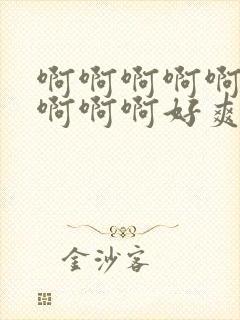 啊啊啊啊啊
啊啊啊好爽
金沙客